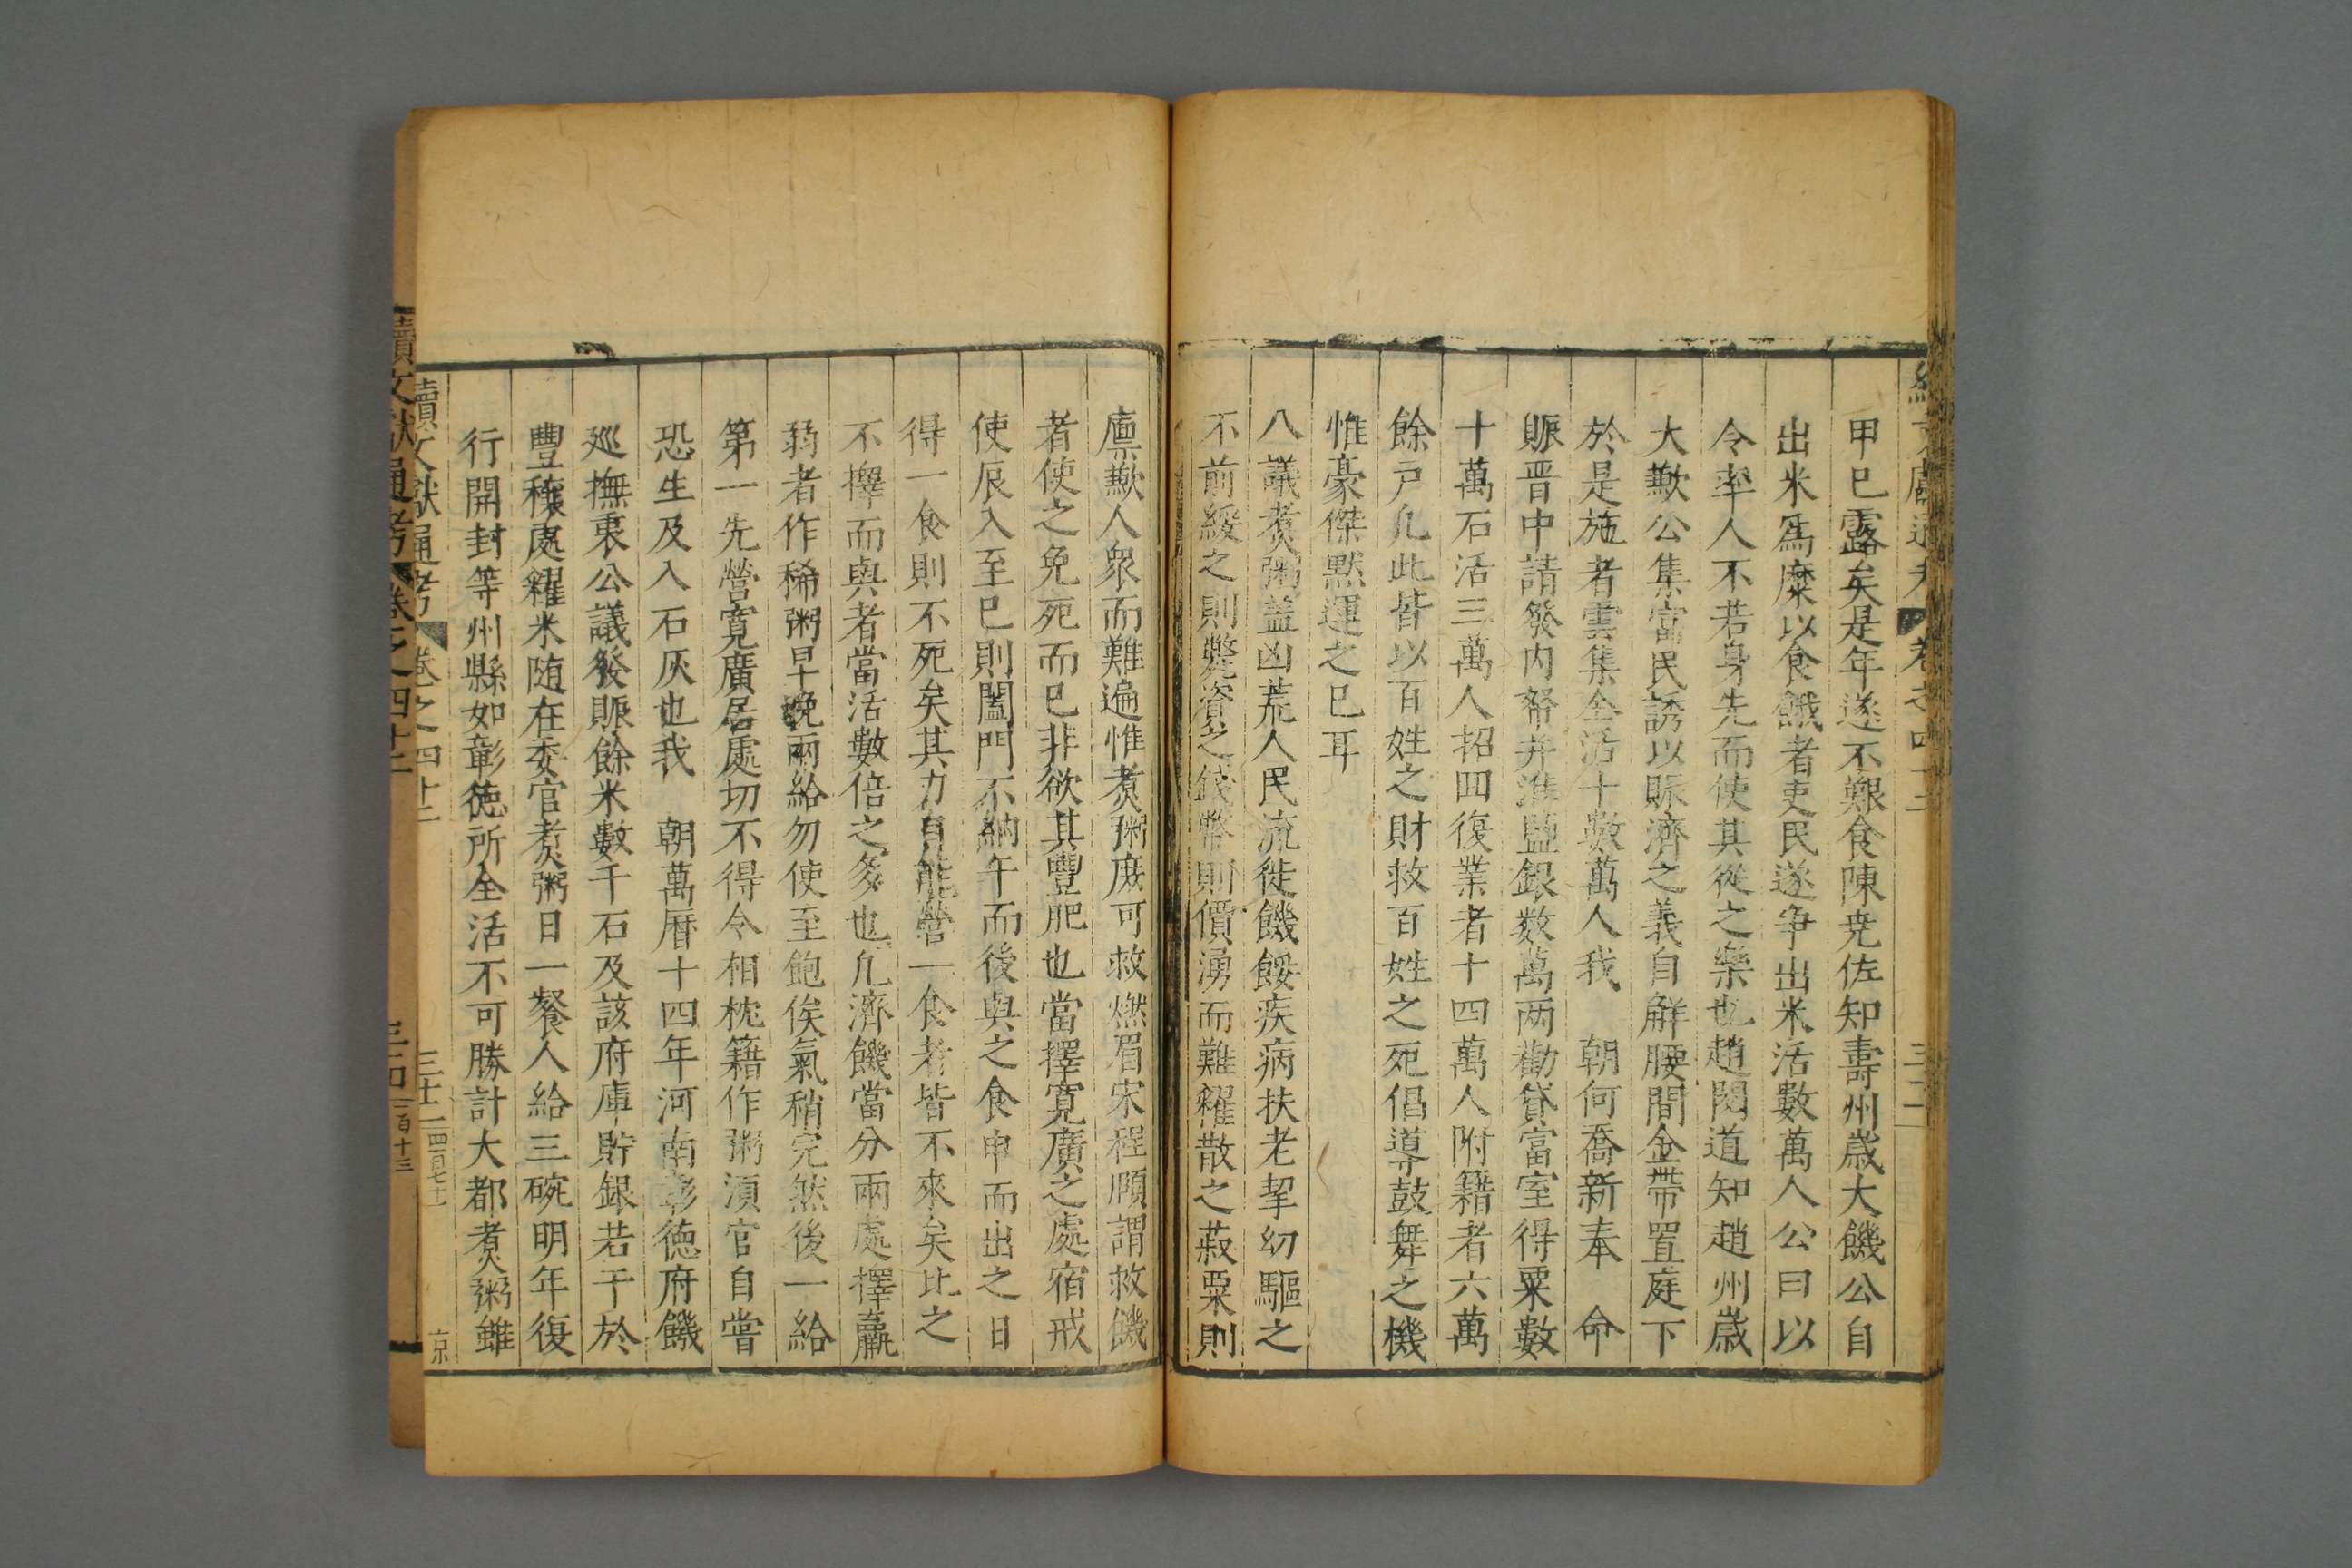 甲已露矣是年遂不艱食陳尭佐知壽州歲大饑公自
出米爲糜以食餓者吏民遂争出米活數萬人公曰以
令率人不若身先而使其從之樂也趙閱道知趙州歲
大歉公集富民誘以賑濟之義自解腰間金帶置庭下
於是施者雲集全活十數萬人我　朝何喬新奉　命
賑晋中請發内帑并淮鹽銀数萬两勸貸富室得粟數
十萬石活三萬人招囬復業者十四萬人附籍者六萬
餘戸凢此皆以百姓之財救百姓之死倡導鼓舞之機
惟豪傑黙運之已耳
八議煮粥盖凶荒人民流徙饑餒疾病扶老挈幼驅之
不前緩之則斃資之錢幣則價湧而難糴散之菽粟則
廪歉人衆而難遍惟煮粥庶可救燃眉宋程頤謂救饑
者使之免死而已非欲其豐肥也當擇寛廣之處宿戒
使辰入至巳則闔門不納午而後與之食申而出之日
得一食則不死矣其力自能營一食者皆不來矣比之
不擇而與者當活數倍之多也凢濟饑當分兩處擇羸
弱者作稀粥早晚兩給勿使至飽俟氣稍完然後一給
第一先營寛廣居處切不得令相枕籍作粥湏官自嘗
恐生及入石灰也我　朝萬曆十四年河南彰徳府饑
廵撫衷公議發賑餘米數千石及該府庫貯銀若干於
豐穰處糴米随在委官煮粥日一餐人給三碗明年復
行開封等州縣如彰徳所全活不可勝計大都煮粥雖
續文獻通考　卷之四十二